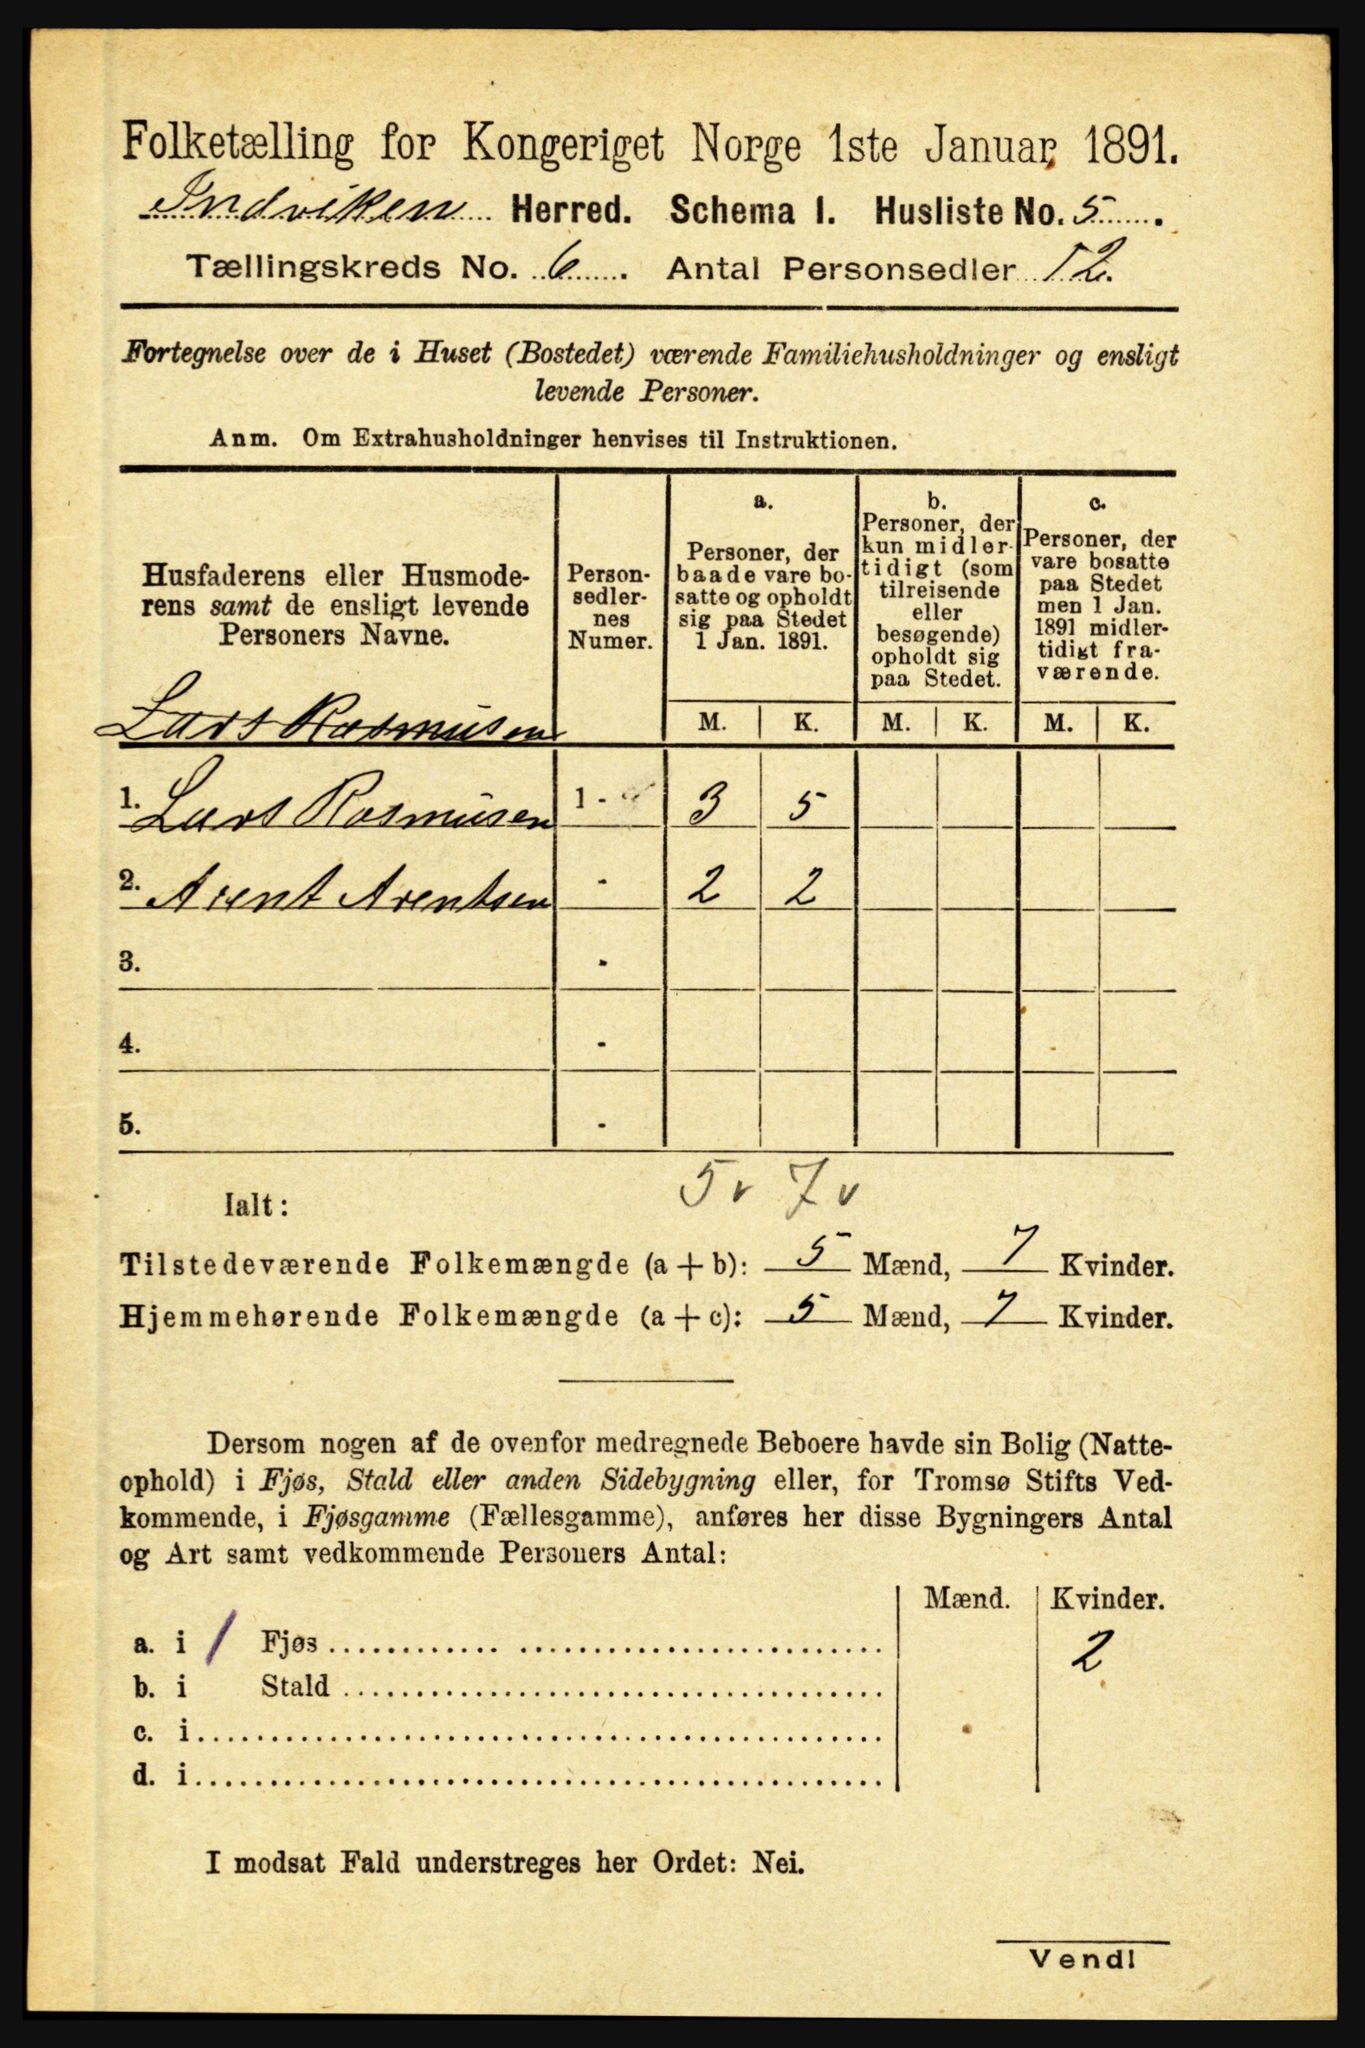 Folketælling for Kongeriget Norge 1ste Januar 1891.
Indviken Herred. Schema I. Husliste No. 5.
Tællingskreds No. 6. Antal Personsedler 12.
Fortegnelse over de i Huset (Bostedet) værende Familiehusholdninger og ensligt
levende Personer.
Anm. Om Extrahusholdninger henvises til Instruktionen.
Husfaderens eller Husmode-
rens samt de ensligt levende
Personers Navne.
Person-
sedler-
nes
Numer.
a.
Personer, der
baade vare bo-
satte og opholdt
sig paa Stedet
1 Jan. 1891.
b.
Personer, der
kun midler-
tidigt (som
tilreisende
eller
besøgende)
opholdt sig
paa Stedet.
c.
Personer, der
vare bosatte
paa Stedet
men 1 Jan.
1891 midler-
tidigt fra-
værende.
M. K. M. K. M. K.
Lars Rasmusen
1. Lars Rasmusen 1 - 3 5
2. Arent Arentsen - 2 2
3. -
4. -
5. -
5 v 7 v
Ialt:
Tilstedeværende Folkemængde (a + b): 5 Mænd, 7 Kvinder.
Hjemmehørende Folkemængde (a + c): 5 Mænd, 7 Kvinder.
Dersom nogen af de ovenfor medregnede Beboere havde sin Bolig (Natte-
ophold) i Fjøs, Stald eller anden Sidebygning eller, for Tromsø Stifts Ved-
kommende, i Fjøsgamme (Fællesgamme), anføres her disse Bygningers Antal
og Art samt vedkommende Personers Antal:
Mænd. Kvinder.
a. i 1 Fjøs 2
b. i Stald
c. i
d. i
I modsat Fald understreges her Ordet: Nei.
Vend!